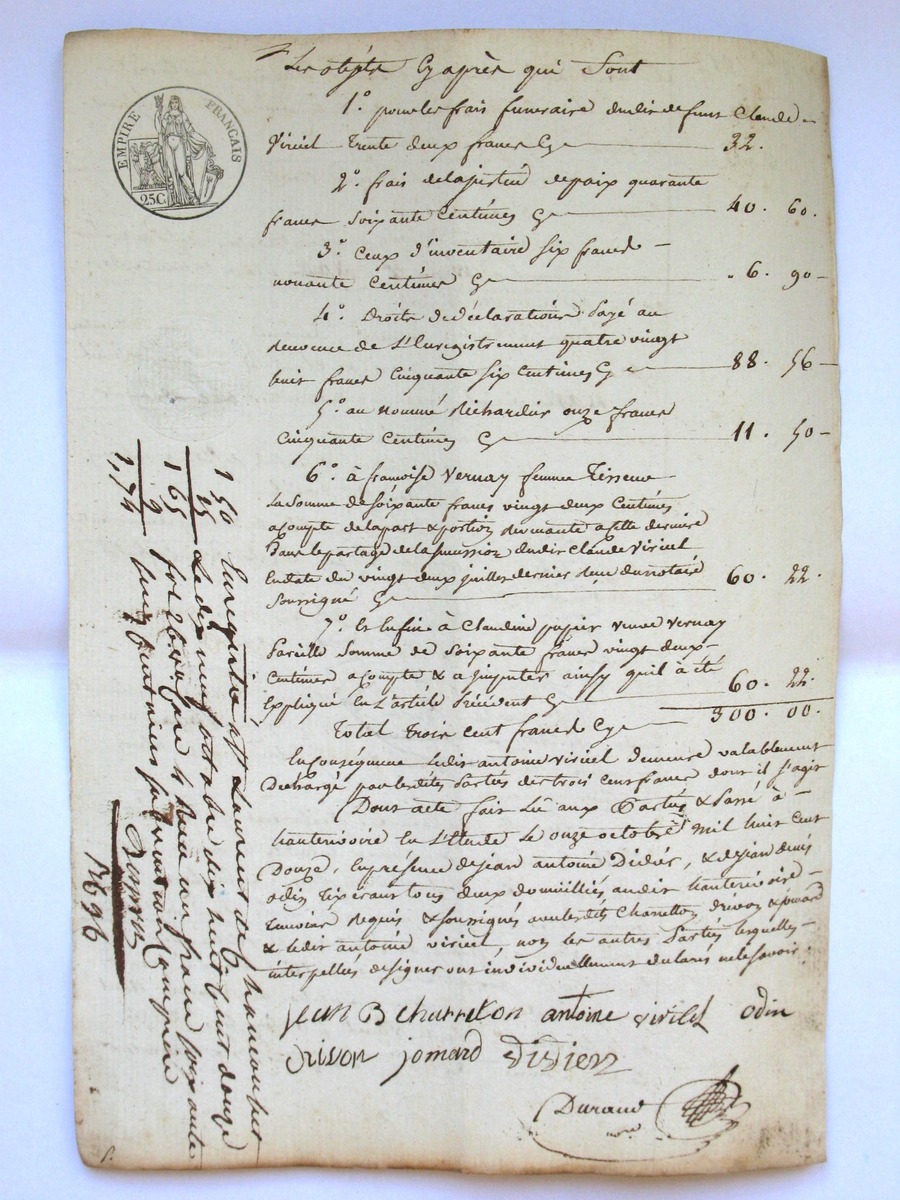 EMPIRE FRANÇAIS
25C.
Les objets Cyaprès qui Sont
1° pour les frais funeraire dudit defunt Claude
Viriel trente deux francs Cy 32.
2° frais de la justice de paix quarante
francs Soixante Centimes Cy 40. 60.
3° Ceux d'inventaire Six francs
nonante Centimes Cy 6. 90
4° Droits de déclarations payé au
de L'Enregistrement quatre vingt
huit francs Cinquante Six Centimes Cy 88. 56
5° au nommé Richardier onze francs
Cinquante Centimes Cy 11. 50
6° à françoise Vernay femme Tisseur
La Somme de Soixante francs vingt deux Centimes
acompte de la part & portion a elle
Dans le partage de la Succession dudit Claude Viriel
En date du vingt deux juillet dernier du notaire
Soussigné Cy 60. 22.
7° Et Enfin à Claudine papier veuve Vernay
Pareille Somme de Soixante francs vingt deux
Centimes acompte & a imputer ainsy quil à été
Expliqué En L'article Précédent Cy 60. 22.
Total Trois Cent francs Cy 300. 00.
En Conséquence Ledit antoine Viriel demeure valablement
Déchargé par lesdites Parties des trois Cent francs dont il S'agit
Dont acte fait Lu aux Parties & Passé à
hauterivoire En L'Etude Le onze octobre mil huit Cent
Douze, En presence de jean antoine Didier, & de jean denis
odin tous deux domiciliés audit hauterivoire
Temoins Requis & Soussignés avec lesdits Charretton, Drivon & jomard
& Ledit antoine viriel, non les autres Parties lesquelles
interpellées de signer ont individuellement declaré ne le Savoir.
jean B charreton antoine viriel odin
Drivon jomard Didier
Durand
nre
Enregistré à St Laurent de Chamousset
Le dix neuf octobre dix huit cent douze
un franc soixante
cinq centimes
1 50
15
1 65
9
1,74
N 696